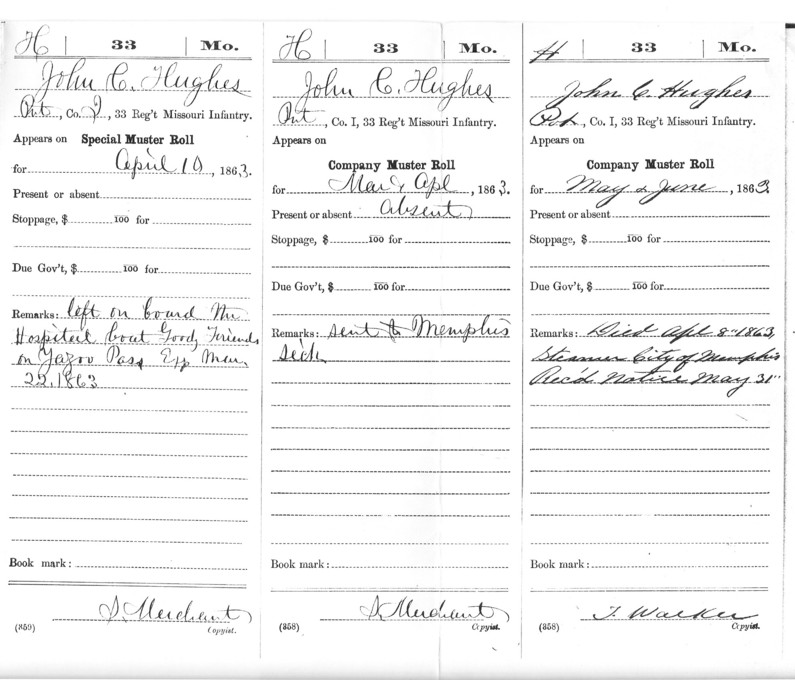 H | 33 | Mo.
John C. Hughes
Pvt, Co. I, 33 Reg't Missouri Infantry.
Appears on Special Muster Roll
for April 10, 1863.
Present or absent
Stoppage, $ 100 for
Due Gov't, $ 100 for
Remarks: left on board the
Hospital boat Good Friends
on Yazoo Pass Exp Mar
22, 1863
Book mark:
S Merchant
(359) Copyist.
H | 33 | Mo.
John C. Hughes
Pvt, Co. I, 33 Reg't Missouri Infantry.
Appears on
Company Muster Roll
for Mar & Apl, 1863.
Present or absent Absent
Stoppage, $ 100 for
Due Gov't, $ 100 for
Remarks: sent to Memphis
sick
Book mark:
S. Merchant
(358) Copyist.
H | 33 | Mo.
John C. Hughes
Pvt, Co. I, 33 Reg't Missouri Infantry.
Appears on
Company Muster Roll
for May & June, 1863.
Present or absent
Stoppage, $ 100 for
Due Gov't, $ 100 for
Remarks: Died Apl 8" 1863,
Steamer City of Memphis
Rec'd Notice May 31"
Book mark:
T. Walker
(358) Copyist.